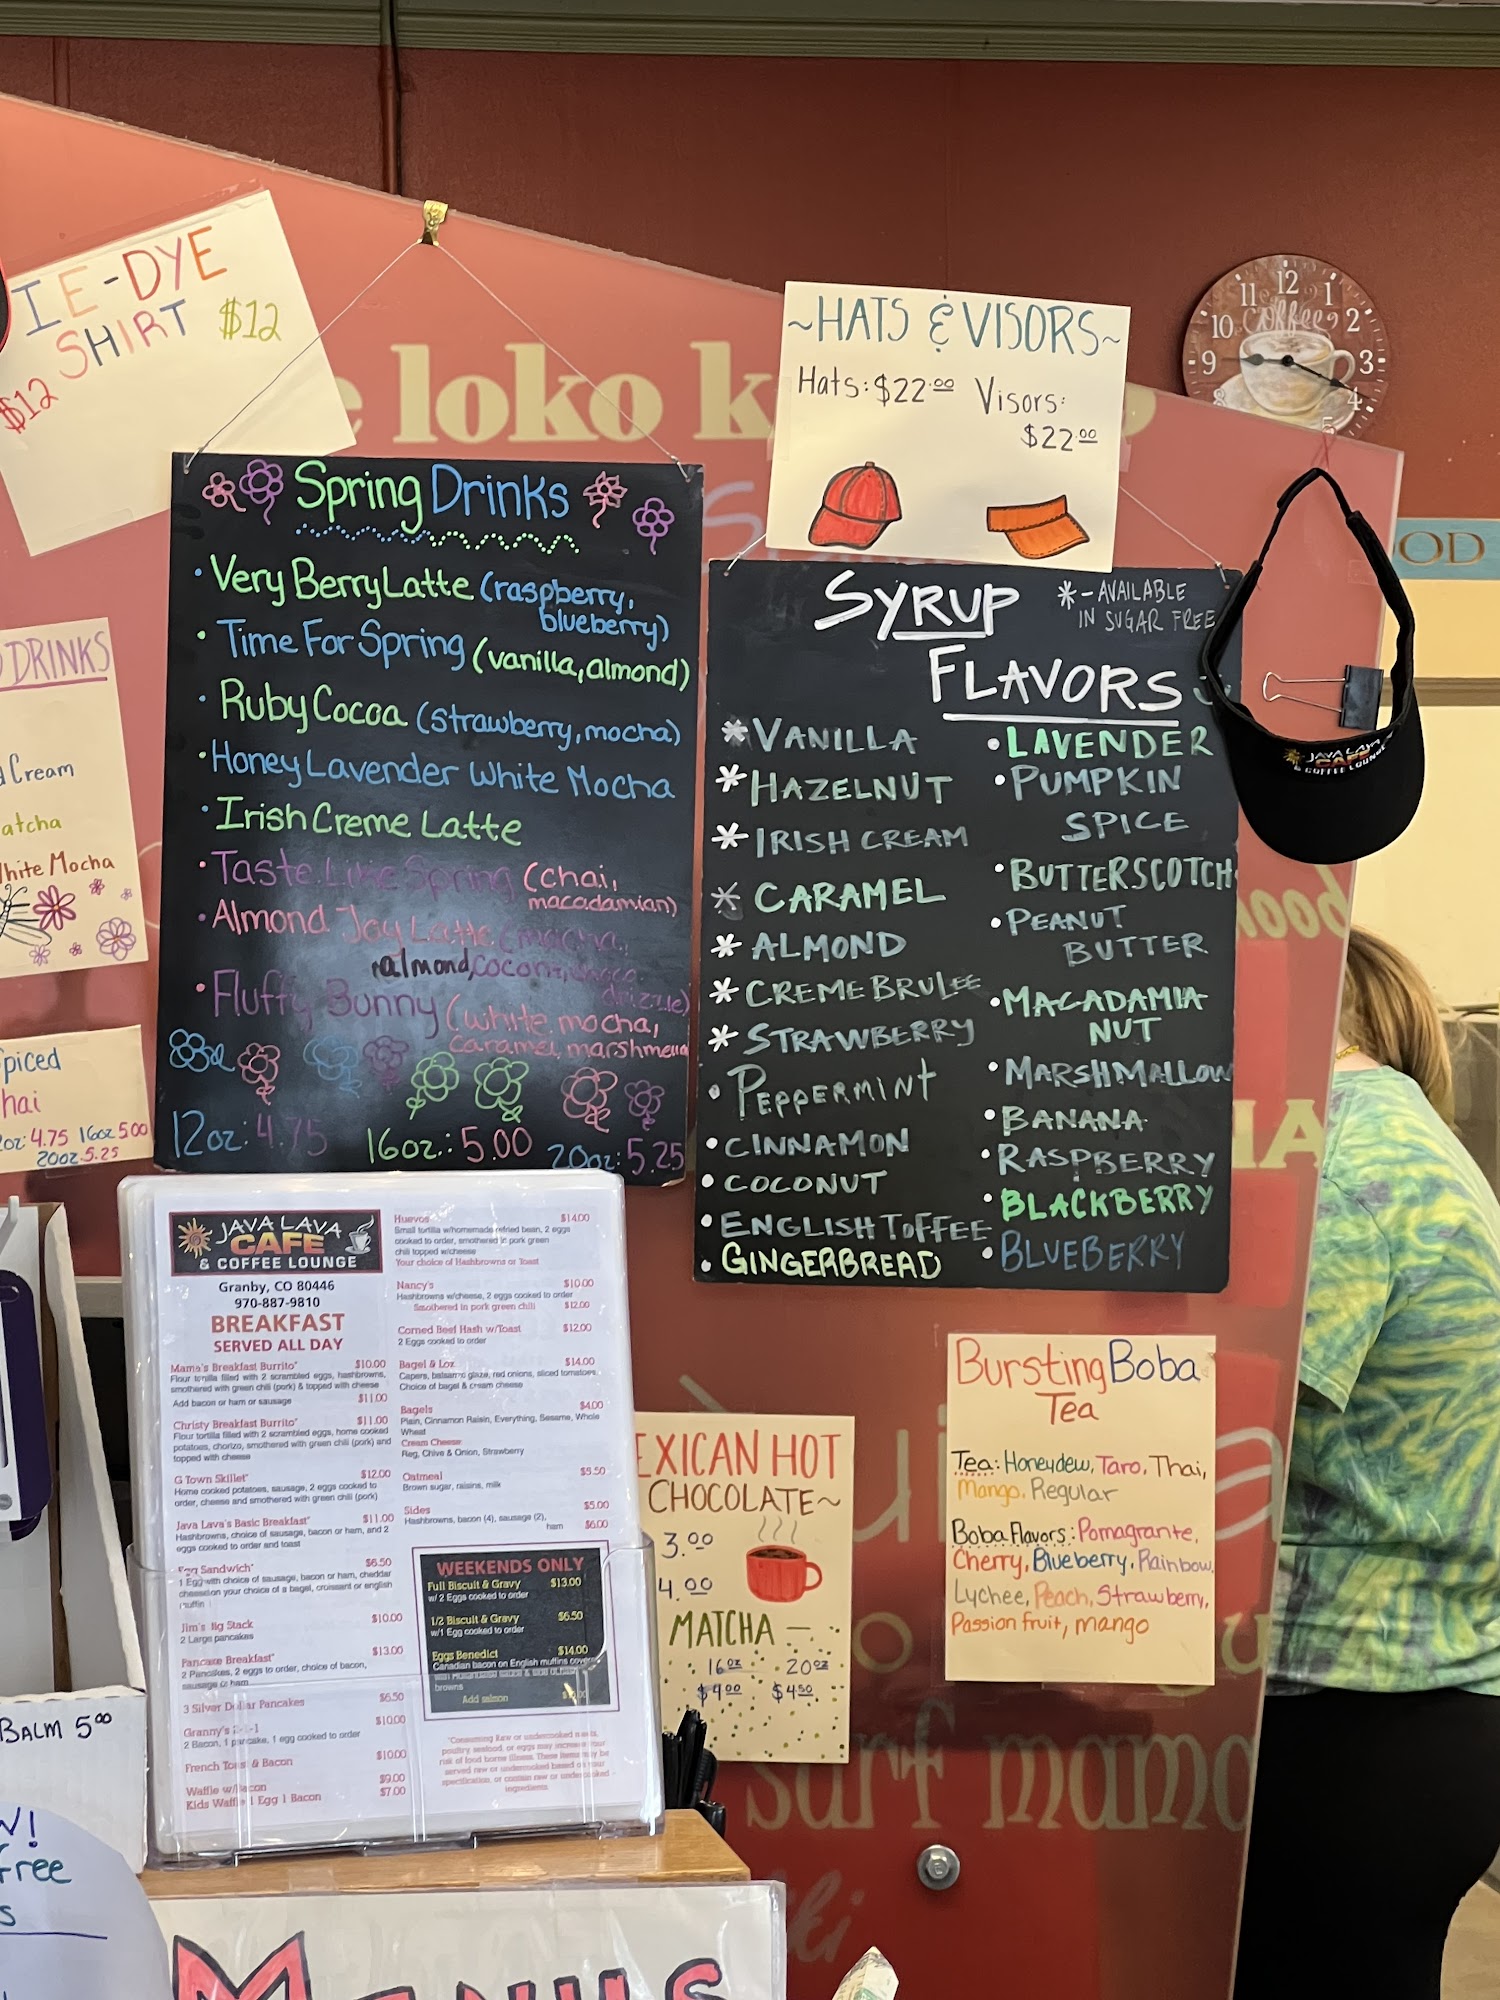 IE-DYE
SHIRT $12
$12
loko k
~HATS & VISORS~
Hats: $22.00 Visors:
$22.00
11 12 1
10 Coffee 2
9 3
4
5
OOD
Spring Drinks
• Very Berry Latte (raspberry,
blueberry)
• Time For Spring (vanilla, almond)
• Ruby Cocoa (strawberry, mocha)
• Honey Lavender White Mocha
• Irish Creme Latte
• Taste Like Spring (chai,
macadamian)
• Almond Joy Latte (mocha,
almond, coconut, choco
drizzle)
• Fluffy Bunny (white mocha,
caramel, marshmella
12oz: 4.75 16oz.: 5.00 20oz: 5.25
DRINKS
Cream
atcha
hite Mocha
piced
hai
oz: 4.75 16oz 5.00
20oz 5.25
SYRUP
FLAVORS
* - AVAILABLE
IN SUGAR FREE
* VANILLA
* HAZELNUT
* IRISH CREAM
* CARAMEL
* ALMOND
* CREME BRULEE
* STRAWBERRY
• PEPPERMINT
• CINNAMON
• COCONUT
• ENGLISH TOFFEE
• GINGERBREAD
• LAVENDER
• PUMPKIN
SPICE
• BUTTERSCOTCH
• PEANUT
BUTTER
• MACADAMIA
NUT
• MARSHMALLOW
• BANANA
• RASPBERRY
• BLACKBERRY
• BLUEBERRY
JAVA LAVA
CAFE
& COFFEE LOUNGE
JAVA LAVA
CAFE
& COFFEE LOUNGE
Granby, CO 80446
970-887-9810
BREAKFAST
SERVED ALL DAY
Mama's Breakfast Burrito* $10.00
Flour tortilla filled with 2 scrambled eggs, hashbrowns,
smothered with green chili (pork) & topped with cheese
Add bacon or ham or sausage $11.00
Christy Breakfast Burrito* $11.00
Flour tortilla filled with 2 scrambled eggs, home cooked
potatoes, chorizo, smothered with green chili (pork) and
topped with cheese
G Town Skillet* $12.00
Home cooked potatoes, sausage, 2 eggs cooked to
order, cheese and smothered with green chili (pork)
Java Lava's Basic Breakfast* $11.00
Hashbrowns, choice of sausage, bacon or ham, and 2
eggs cooked to order and toast
Egg Sandwich* $6.50
1 Egg with choice of sausage, bacon or ham, cheddar
cheese on your choice of a bagel, croissant or english
muffin
Jim's Big Stack $10.00
2 Large pancakes
Pancake Breakfast* $13.00
2 Pancakes, 2 eggs to order, choice of bacon,
sausage or ham
3 Silver Dollar Pancakes $6.50
Granny's $10.00
2 Bacon, 1 pancake, 1 egg cooked to order
French Toast & Bacon $10.00
Waffle w/Bacon $9.00
Kids Waffle 1 Egg 1 Bacon $7.00
Huevos $14.00
Small tortilla w/homemade refried bean, 2 eggs
cooked to order, smothered in pork green
chili topped w/cheese
Your choice of Hashbrowns or Toast
Nancy's $10.00
Hashbrowns w/cheese, 2 eggs cooked to order
Smothered in pork green chili $12.00
Corned Beef Hash w/Toast $12.00
2 Eggs cooked to order
Bagel & Lox $14.00
Capers, balsamic glaze, red onions, sliced tomatoes
Choice of bagel & cream cheese
Bagels $4.00
Plain, Cinnamon Raisin, Everything, Sesame, Whole
Wheat
Cream Cheese
Reg, Chive & Onion, Strawberry
Oatmeal $5.50
Brown sugar, raisins, milk
Sides $5.00
Hashbrowns, bacon (4), sausage (2),
ham $6.00
WEEKENDS ONLY
Full Biscuit & Gravy $13.00
w/ 2 Eggs cooked to order
1/2 Biscuit & Gravy $6.50
w/1 Egg cooked to order
Eggs Benedict $14.00
Canadian bacon on English muffins
browns
Add salmon
*Consuming Raw or undercooked meats,
poultry, seafood, or eggs may increase your
risk of food borne illness. These items may be
served raw or undercooked based on your
specification, or contain raw or undercooked
ingredients.
EXICAN HOT
CHOCOLATE~
3.00
4.00
MATCHA —
16oz 20oz
$4.00 $4.50
Bursting Boba
Tea
Tea: Honeydew, Taro, Thai,
Mango, Regular
Boba Flavors: Pomagrante,
Cherry, Blueberry, Rainbow,
Lychee, Peach, Strawberry,
Passion fruit, mango
surf mama
BALM 5.00
W!
free
s
MENUS